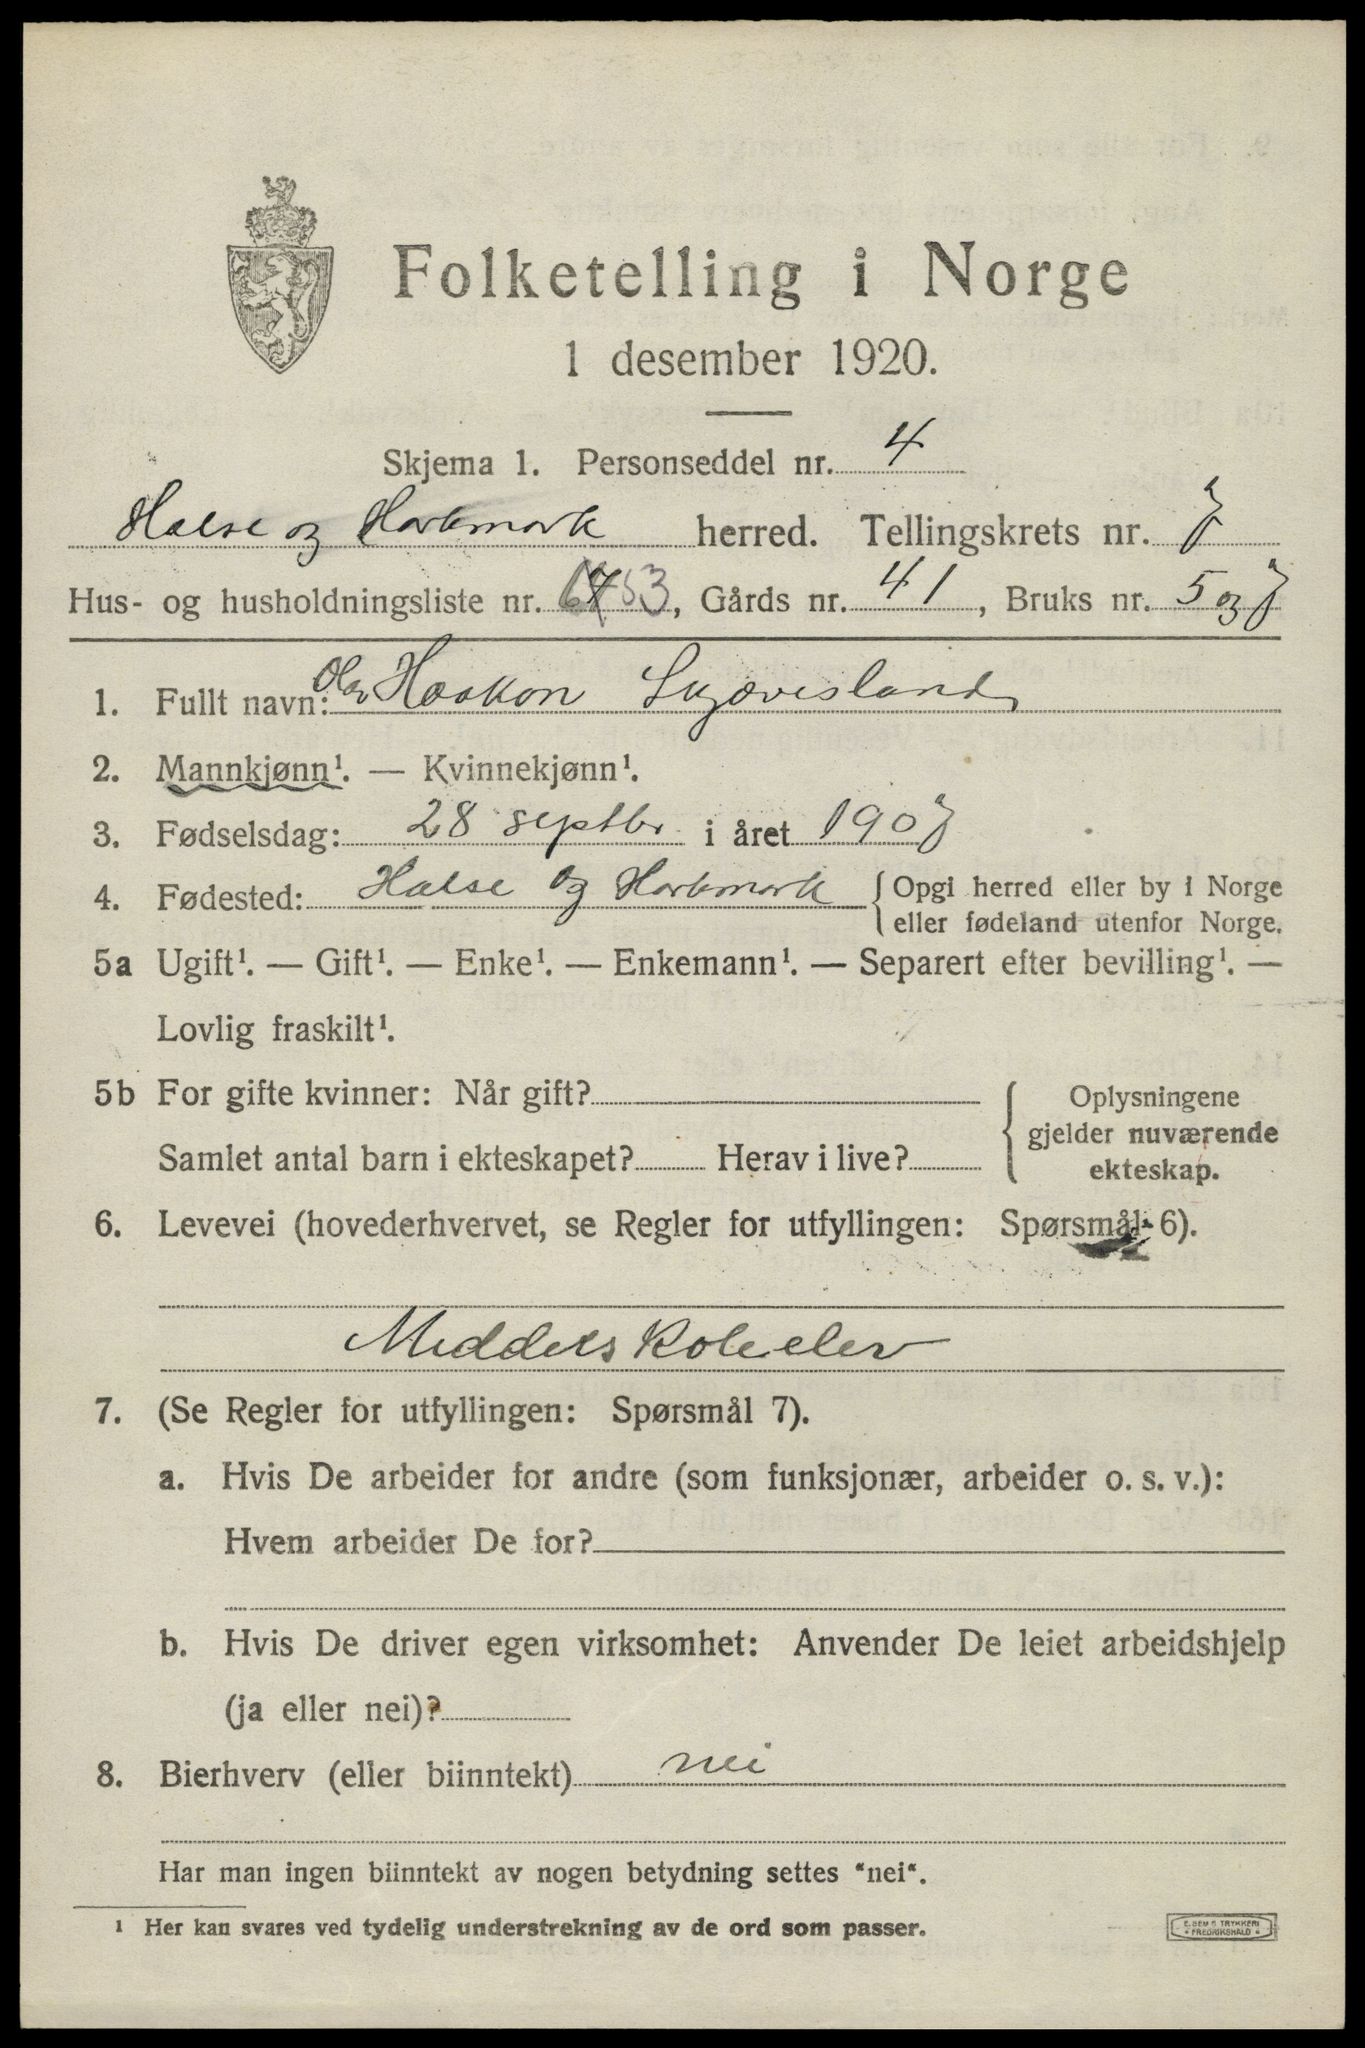 Folketelling i Norge
1 desember 1920.
Skjema 1. Personseddel nr. 4
Halse og Harkmark herred. Tellingskrets nr. 7
Hus- og husholdningsliste nr. 53, Gårds nr. 41, Bruks nr. 5 og 7
1. Fullt navn: Olav Haakon Skjævesland
2. Mannkjønn¹. — Kvinnekjønn¹.
3. Fødselsdag: 28 septbr i året 1907
4. Fødested: Halse og Harkmark { Opgi herred eller by i Norge
eller fødeland utenfor Norge.
5a Ugift¹. — Gift¹. — Enke¹. — Enkemann¹. — Separert efter bevilling¹. —
Lovlig fraskilt¹.
5b For gifte kvinner: Når gift?
Samlet antal barn i ekteskapet? Herav i live?
Oplysningene
gjelder nuværende
ekteskap.
6. Levevei (hovederhvervet, se Regler for utfyllingen: Spørsmål 6).
Middelskoleelev
7. (Se Regler for utfyllingen: Spørsmål 7).
a. Hvis De arbeider for andre (som funksjonær, arbeider o. s. v.):
Hvem arbeider De for?
b. Hvis De driver egen virksomhet: Anvender De leiet arbeidshjelp
(ja eller nei)?
8. Bierhverv (eller biinntekt) nei
Har man ingen biinntekt av nogen betydning settes "nei".
¹ Her kan svares ved tydelig understrekning av de ord som passer.
E. SEM S TRYKKERI
FREDRIKSHALD